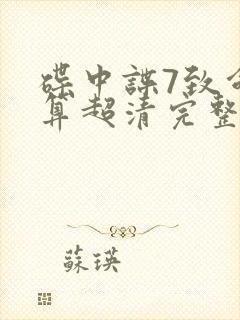 碟中諜7致命
算超清完整
蘇瑛